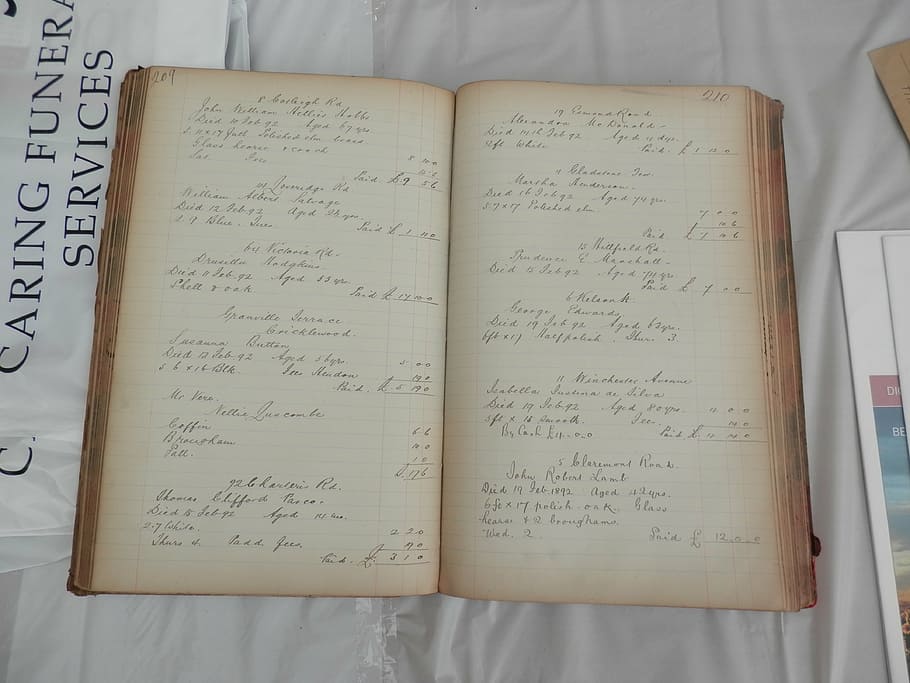 CARING FUNERA
SERVICES
C.
209
8 Carleigh Rd
John William Hobbs
Died 10 Feb 92 Aged 67 yrs.
5.11 x 17 Polished elm
Glass hearse & coach
8 10 0
Paid £ 9 5 6
Loveridge Rd
William Albert Salvage
Died 12 Feb 92 Aged
Blue. Fees.
Paid £ 1
64 Victoria Rd.
Drusilla Hodgkins.
Died 11 Feb 92 Aged 53 yrs.
Shell & oak
Paid £ 17 10 0
Granville Terrace
Cricklewood.
Susanna Button
Died 12 Feb 92 Aged 56 yrs.
5 0 0
5 6 x 16 Blk. Fees Hendon
19 0
Paid. £ 5 19 0
Mr Vere.
Nellie Luscombe
Coffin
6 6
Brougham
10 0
Pall.
1 0
£ 17 6
92 Charteris Rd.
Thomas Clifford Pasco.
Died 15 Feb 92 Aged
2.7 White.
2 2 0
Thurs 4. Padd. fees.
19 0
Paid. £ 3 1 0
210
19 Esmond Road
Alexandra McDonald
Died 14th Feb 92 Aged 11 dys.
2ft White
Paid. £ 1 12 0
11 Gladstone Ter.
Martha Henderson.
Died 16 Feb 92 Aged 74 yrs.
5.7 x 17 Polished elm
7 0 0
10 6
Paid £ 7 10 6
15 Hillfield Rd.
Prudence E Marshall
Died 15 Feb 92 Aged 74 yrs.
Paid £ 7 0 0
6 Nelson
George Edwards
Died 19 Feb 92 Aged 62 yrs.
6ft x 17 Half polish. Thur. 3.
11 Winchester Avenue
Isabella Justina de Silva
Died 19 Feb 92 Aged 80 yrs.
5ft x 15 smooth. Fee.
14 0
By Cash £4.0.0
Paid £ 4 14 0
5 Claremont Road.
John Robert Lamb
Died 19 Feb. 1892 Aged 42 yrs.
6ft x 17 polish. oak. Glass
hearse & 2 broughams.
Wed. 2.
Paid £ 12.0.0